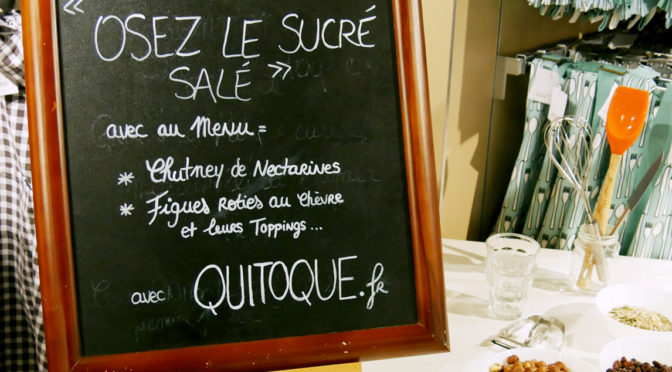 « OSEZ LE SUCRÉ
SALÉ »
avec au Menu =
* Chutney de Nectarines
* Figues Roties au chèvre
et leurs Toppings...
avec QUITOQUE.fr